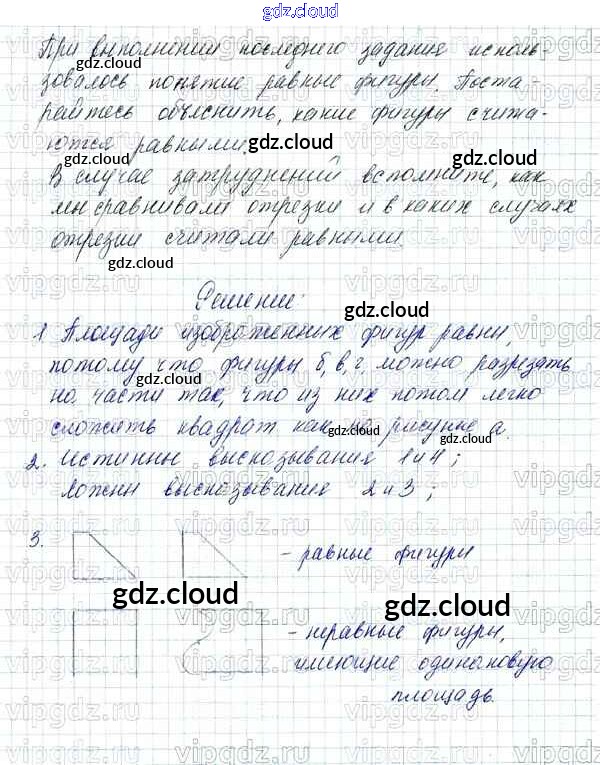 gdz.cloud
При выполнении последнего задания исполь
зовалось понятие равные фигуры. Поста-
райтесь объяснить, какие фигуры счита-
ются равными.
В случае затруднений вспомните, как
мы сравнивали отрезки и в каких случаях
отрезки считали равными.
Решение:
1 Площади изображенных фигур равны,
потому что фигуры б, в, г можно разрезать
на части так, что из них потом легко
сложить квадрат как на рисунке а.
2. Истинны высказывания 1 и 4;
Ложны высказывания 2 и 3;
3. - равные фигуры
- неравные фигуры,
имеющие одинаковую
площадь.